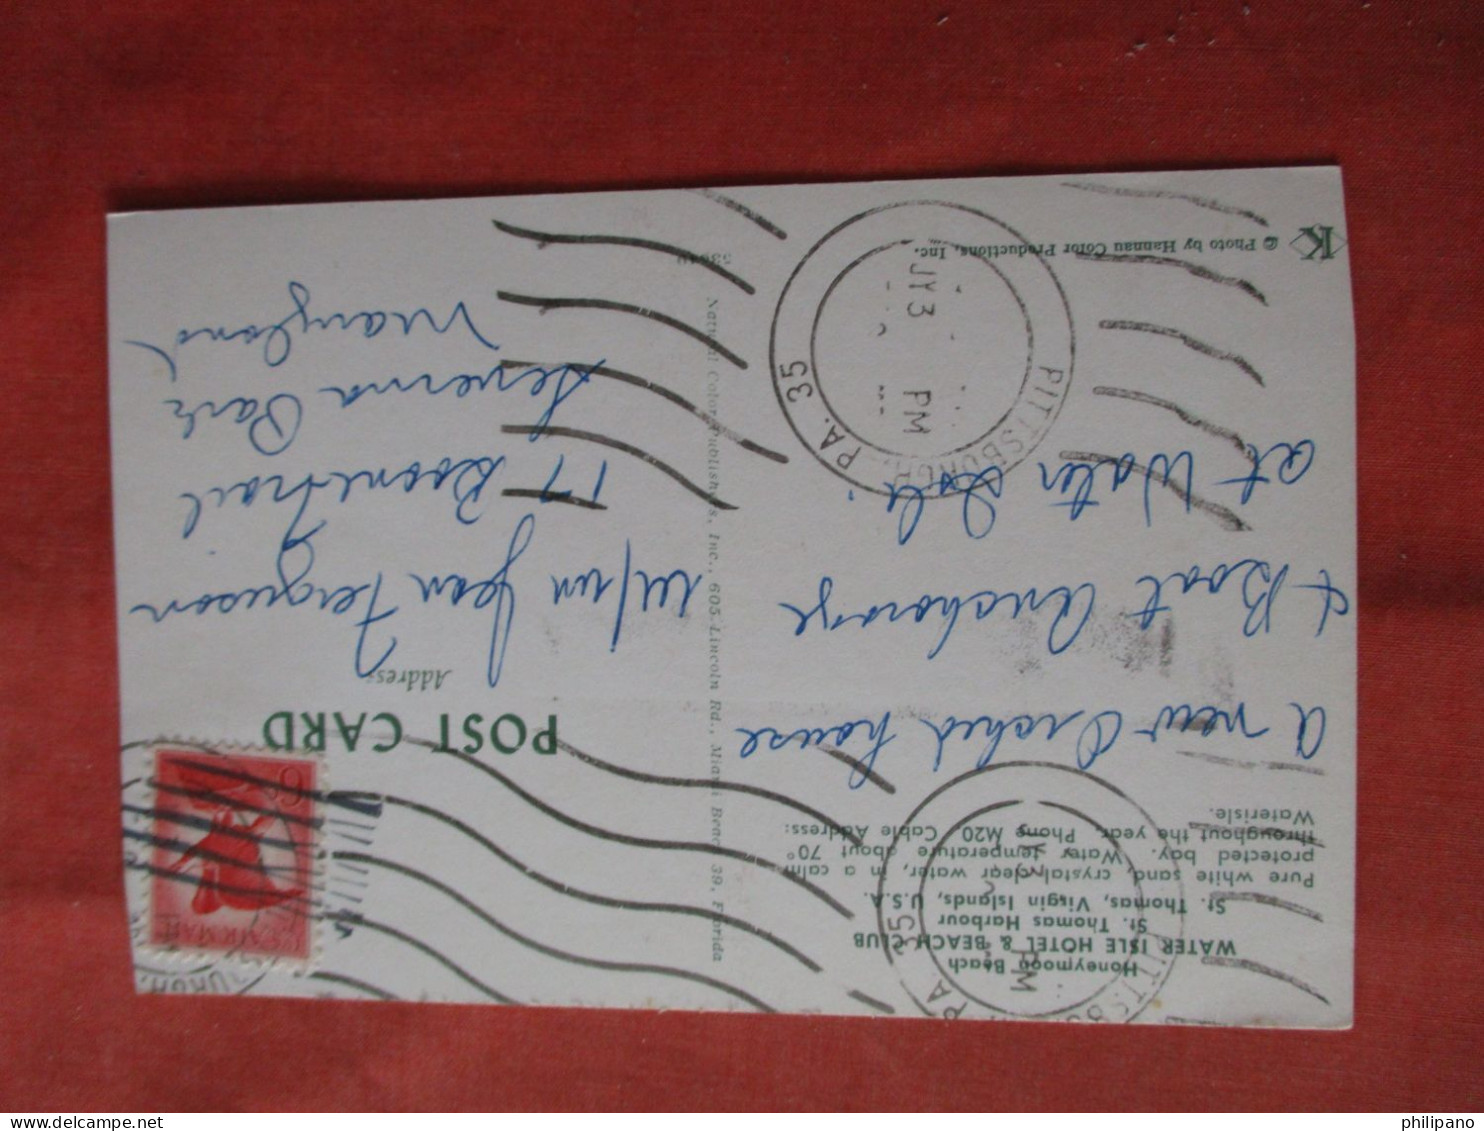 Honeymoon Beach
WATER ISLE HOTEL & BEACH CLUB
St. Thomas Harbour
St. Thomas, Virgin Islands, U.S.A.
Pure white sand, crystal clear water, in a calm
protected bay. Water temperature about 70°
throughout the year. Phone M20 Cable Address:
Waterisle.
A new Orchid house
& Boat Anchorage
at Water Isle.
© Photo by Hannau Color Productions, Inc.
K
Natural Color Publishers, Inc., 605 Lincoln Rd., Miami Beach 39, Florida
POST CARD
Address
Jean Ferguson
17 Boone Trail
Severna Park
Maryland
PITTSBURGH, PA. 35
JY 3
PM
PM
35
PA.
6
U.S. AIR MAIL
philipano